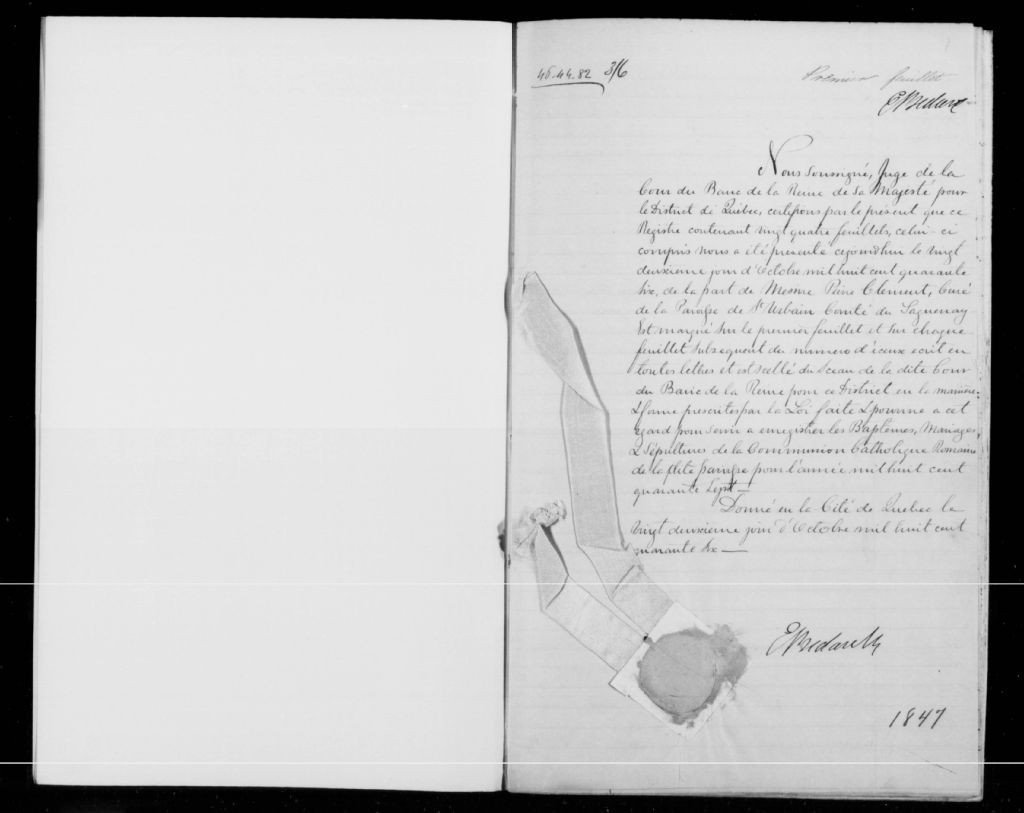 46-44.82 3/6
Premier feuillet
E Bedard
Nous soussigné, Juge de la
Cour du Banc de la Reine de Sa Majesté pour
le District de Québec, certifions par le présent que ce
Registre contenant vingt quatre feuillets, celui-ci
compris nous a été présenté cejourdhui le vingt
deuxieme jour d'Octobre mil huit cent quarante
six, de la part de Messire Clément, Curé
de la Paroisse de St Urbain Comté du Saguenay
Est marqué sur le premier feuillet et sur chaque
feuillet subsequent du numero d'iceux ecrit en
toutes lettres et est scellé du Sceau de la dite Cour
du Banc de la Reine pour ce District en la manière
& forme prescrites par la Loi faite & pourvue a cet
egard pour servir a enregistrer les Baptêmes, Mariages,
& Sépultures de la Communion Catholique Romaine
de la dite paroisse pour l'année mil huit cent
quarante Sept—
Donné en la Cité de Quebec le
vingt deuxieme jour d'Octobre mil huit cent
quarante six —
E Bedard
1847